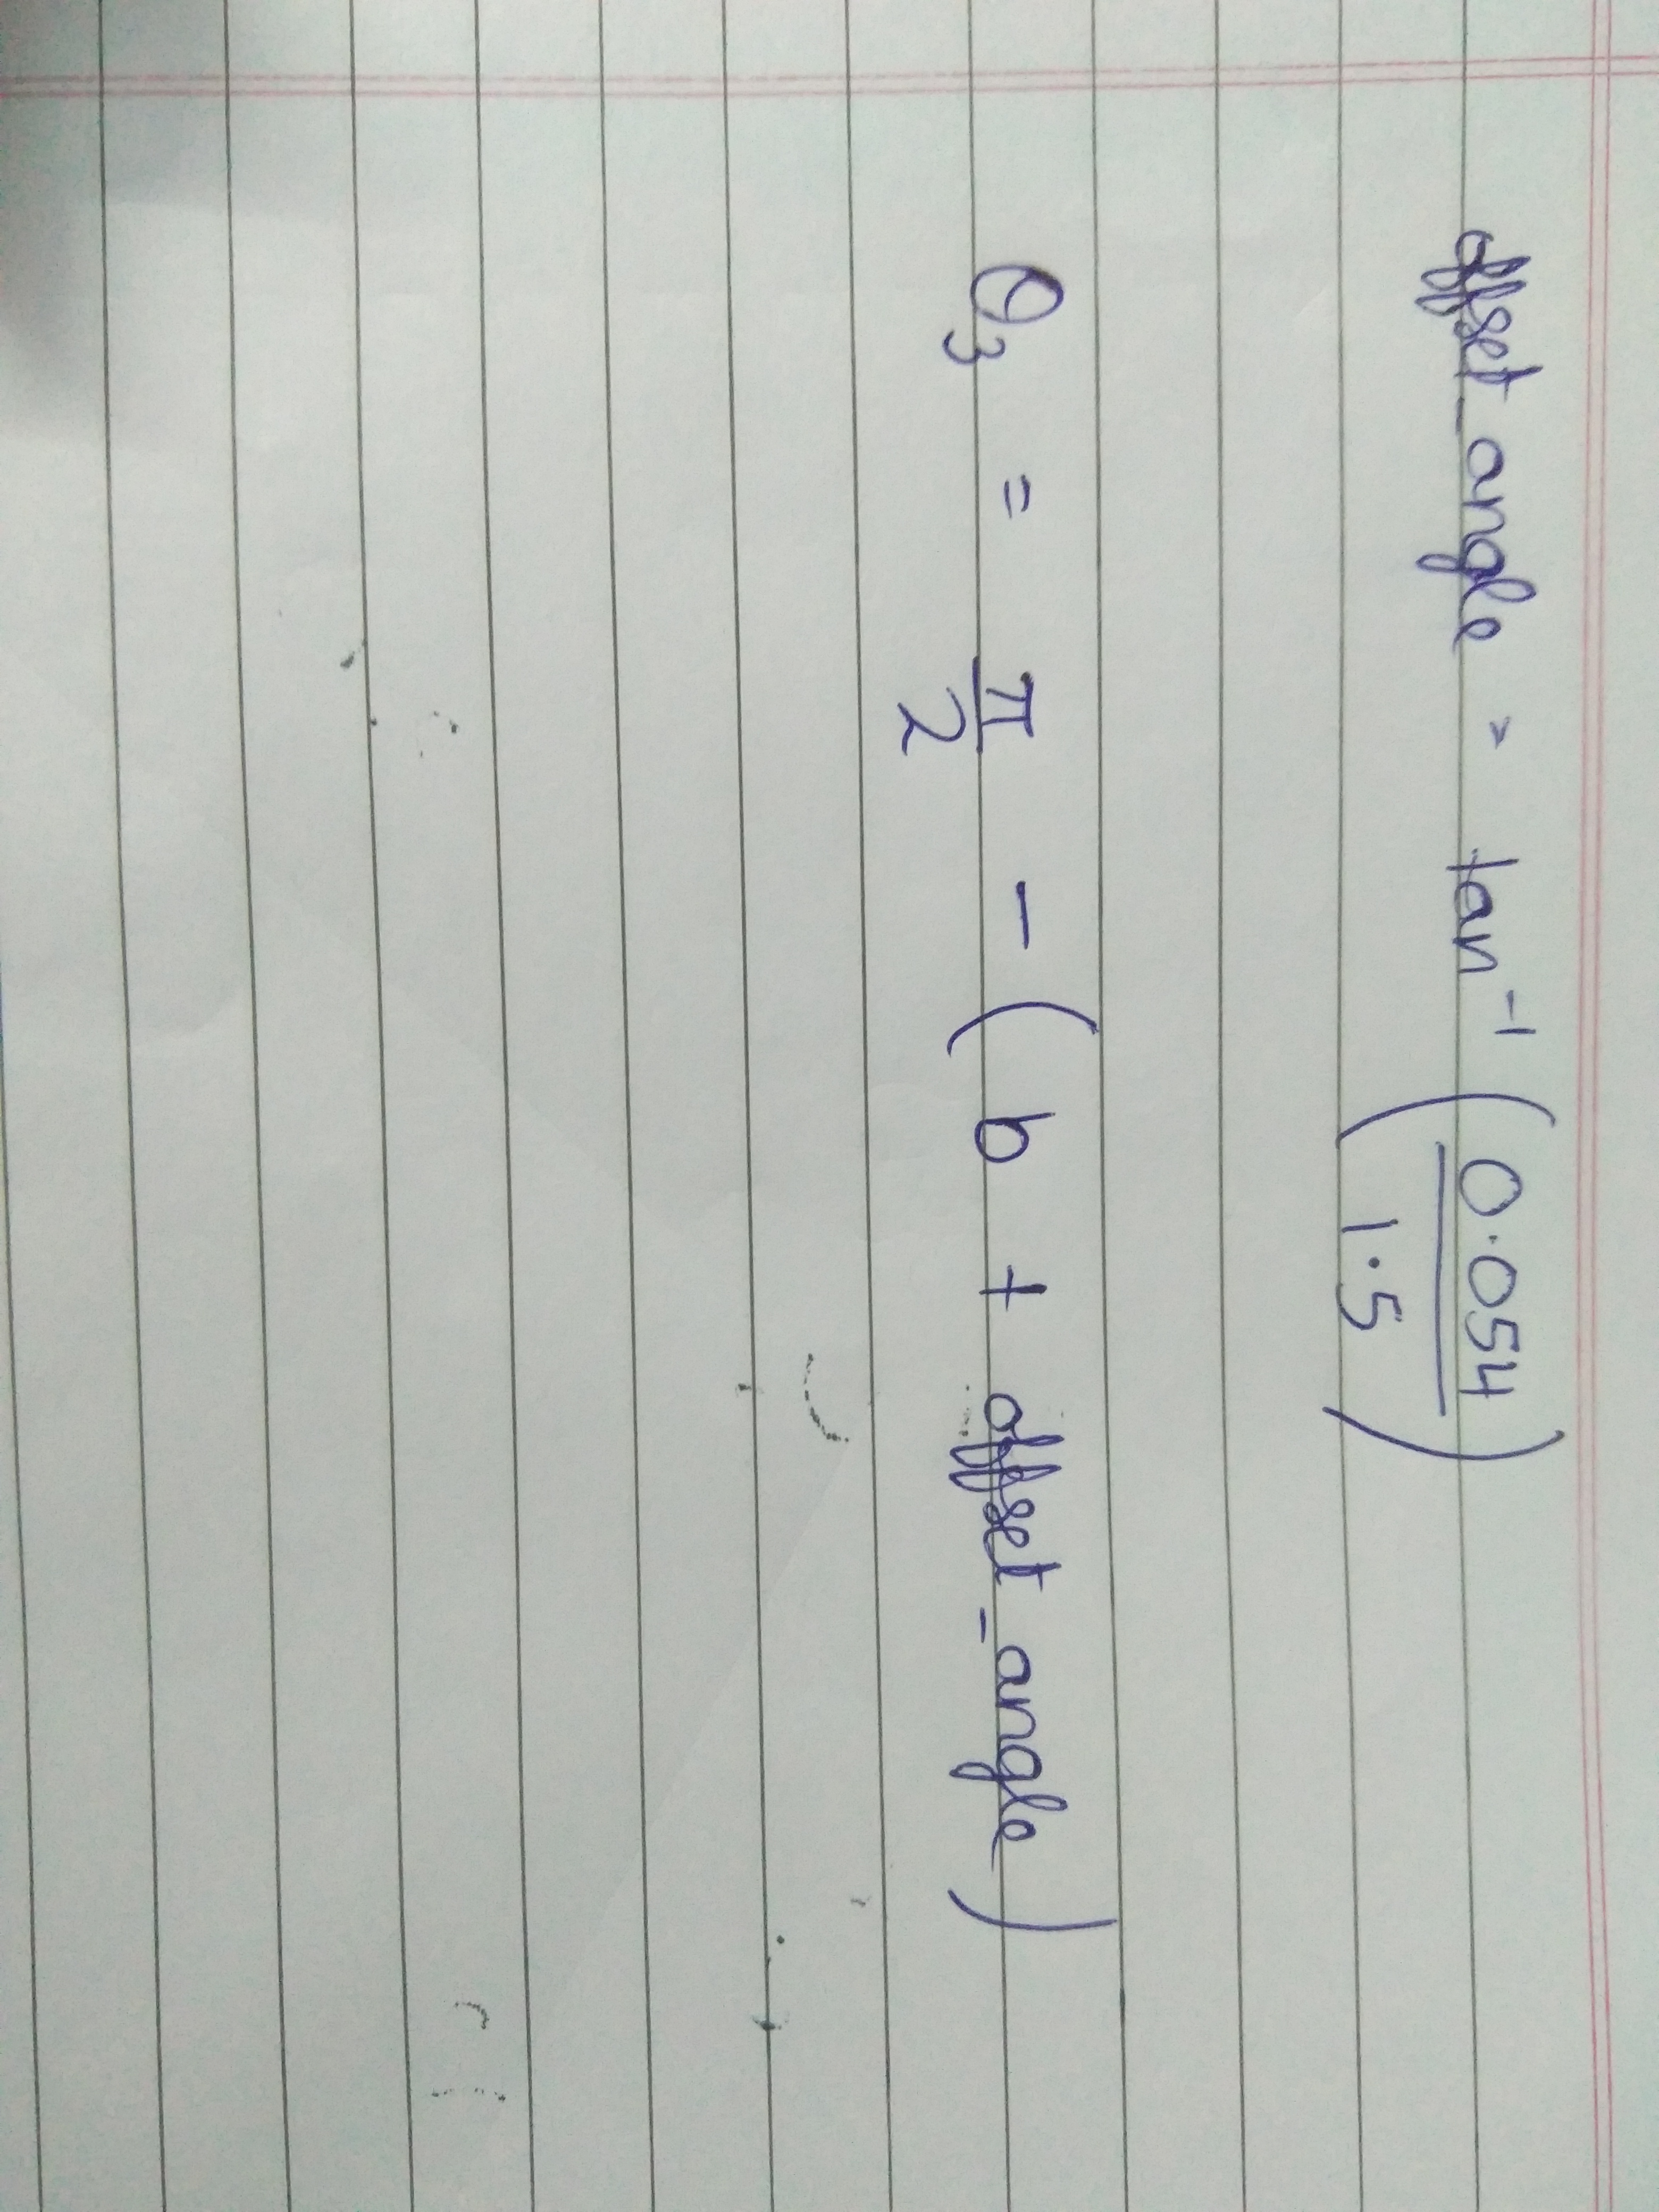 offset_angle = tan⁻¹ (0.054 / 1.5)
θ₃ = π/2 - (b + offset_angle)